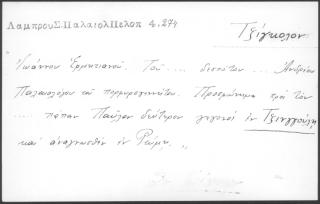 Λαμπρου Σ. Παλαιολ Πελοπ 4.274
Τζίγκολον
Ἰωάννου Ἑρμητιανοῦ. Τοῦ .... δεσπότου ... Ἀνδρέου
Παλαιολόγου τοῦ πορφυρογεννήτου. Προσφώνημα πρὸς τὸν
... πάπαν Παῦλον δεύτερον γεγονὸς ἐν Τζιγγούλῃ
καὶ ἀναγνωσθὲν ἐν Ῥώμῃ. „